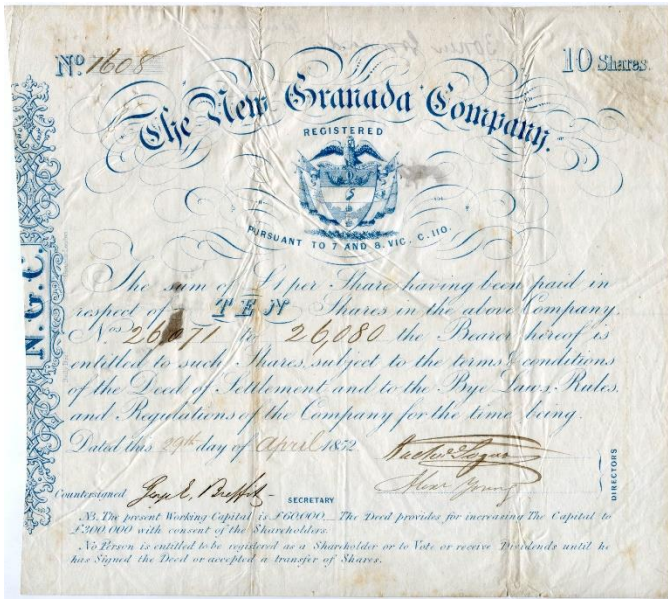 No 1608
10 Shares.
The New Granada Company.
REGISTERED
PURSUANT TO 7 AND 8. VIC. C. 110.
N.G.C.
The sum of £1 per Share having been paid in
respect of TEN Shares in the above Company,
Nos 26,071 to 26,080 the Bearer hereof is
entitled to such Shares, subject to the terms & conditions
of the Deed of Settlement and to the Bye Laws, Rules,
and Regulations of the Company for the time being.
Dated this 29th day of April 1852
Alexr Young
DIRECTORS
Countersigned Geo E. SECRETARY
NB. The present Working Capital is £60,000_ The Deed provides for increasing The Capital to
£300,000 with consent of the Shareholders.
No Person is entitled to be registered as a Shareholder or to Vote or receive Dividends until he
has Signed the Deed or accepted a transfer of Shares.